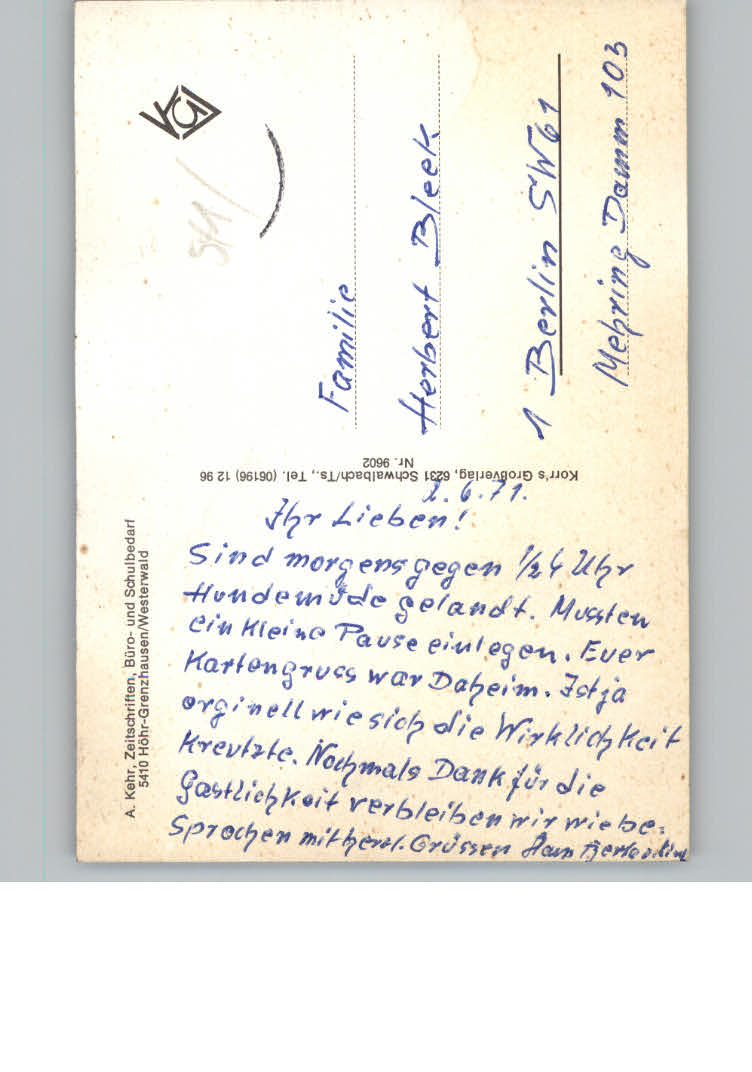 A. Kehr, Zeitschriften, Büro- und Schulbedarf
5410 Höhr-Grenzhausen/Westerwald
2.6.71.
Ihr Lieben!
Sind morgens gegen 1/2 4 Uhr
Hundemüde gelandt. Mussten
ein Kleine Pause einlegen. Euer
Kartengruss war Daheim. Ist ja
orginell wie sich die Wirklichkeit
Kreutzte. Nochmals Dank für die
Gastlichkeit verbleiben wir wie be-
sprochen mit herzl. Grüssen Hans
Korr's Großverlag, 6231 Schwalbach/Ts., Tel. (06196) 12 96
Nr. 9602
Familie
Herbert Bleek
1 Berlin SW 61
Mehring Damm 103